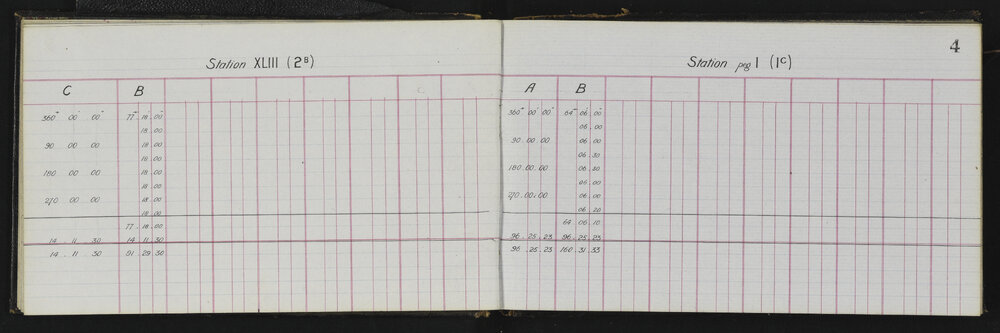 Station XLIII (2B)
C B
360° 00' 00" 77° 18' 00"
18 00
90 00 00 18 00
18 00
180 00 00 18 00
18 00
270 00 00 18 00
18 00
77 . 18 . 00
14 11 30 14 11 30
14 . 11 . 30 91 29 30
4
Station peg I (1C)
A B
360° 00' 00" 64° 06' 00"
06 . 00
90 . 00 . 00 06 00
06 . 30
180 . 00 . 00 06 30
06 . 00
270 . 00 . 00 06 . 00
06 . 20
64 . 06 . 10
96 . 25 . 23 96 . 25 . 23
96 . 25 . 23 160 . 31 . 33